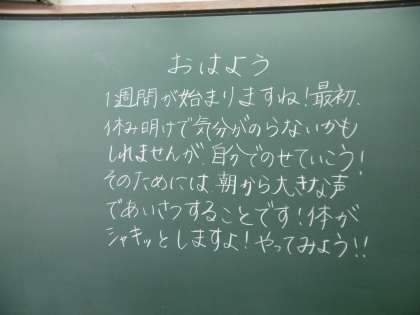 おはよう
1週間が始まりますね！最初、
休み明けで気分がのらないかも
しれませんが、自分でのせていこう！
そのためには、朝から大きな声
であいさつすることです！体が
シャキッとしますよ！やってみよう!!